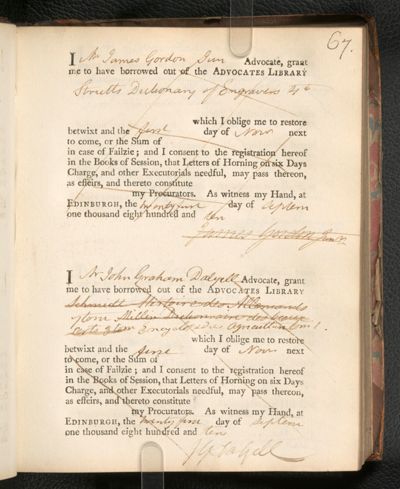 67.
I Mr James Gordon Jun Advocate, grant
me to have borrowed out of the ADVOCATES LIBRARY
Strutts Dictionary of Engravers 4to
which I oblige me to restore
betwixt and the first day of Novr next
to come, or the Sum of
in case of Failzie; and I consent to the registration hereof
in the Books of Session, that Letters of Horning on six Days
Charge, and other Executorials needful, may pass thereon,
as effeirs, and thereto constitute
my Procurators. As witness my Hand, at
EDINBURGH, the twenty first day of Septem
one thousand eight hundred and ten
James Gordon Junr
I Mr John Graham Dalyell Advocate, grant
me to have borrowed out of the ADVOCATES LIBRARY
Schmidt Histoire des Allemands
Miller Dictionnaire
Encyclopedie Agriculture tom 1.
which I oblige me to restore
betwixt and the first day of Novr next
to come, or the Sum of
in case of Failzie; and I consent to the registration hereof
in the Books of Session, that Letters of Horning on six Days
Charge, and other Executorials needful, may pass thereon,
as effeirs, and thereto constitute
my Procurators. As witness my Hand, at
EDINBURGH, the twenty first day of Septem
one thousand eight hundred and ten
J G Dalyell